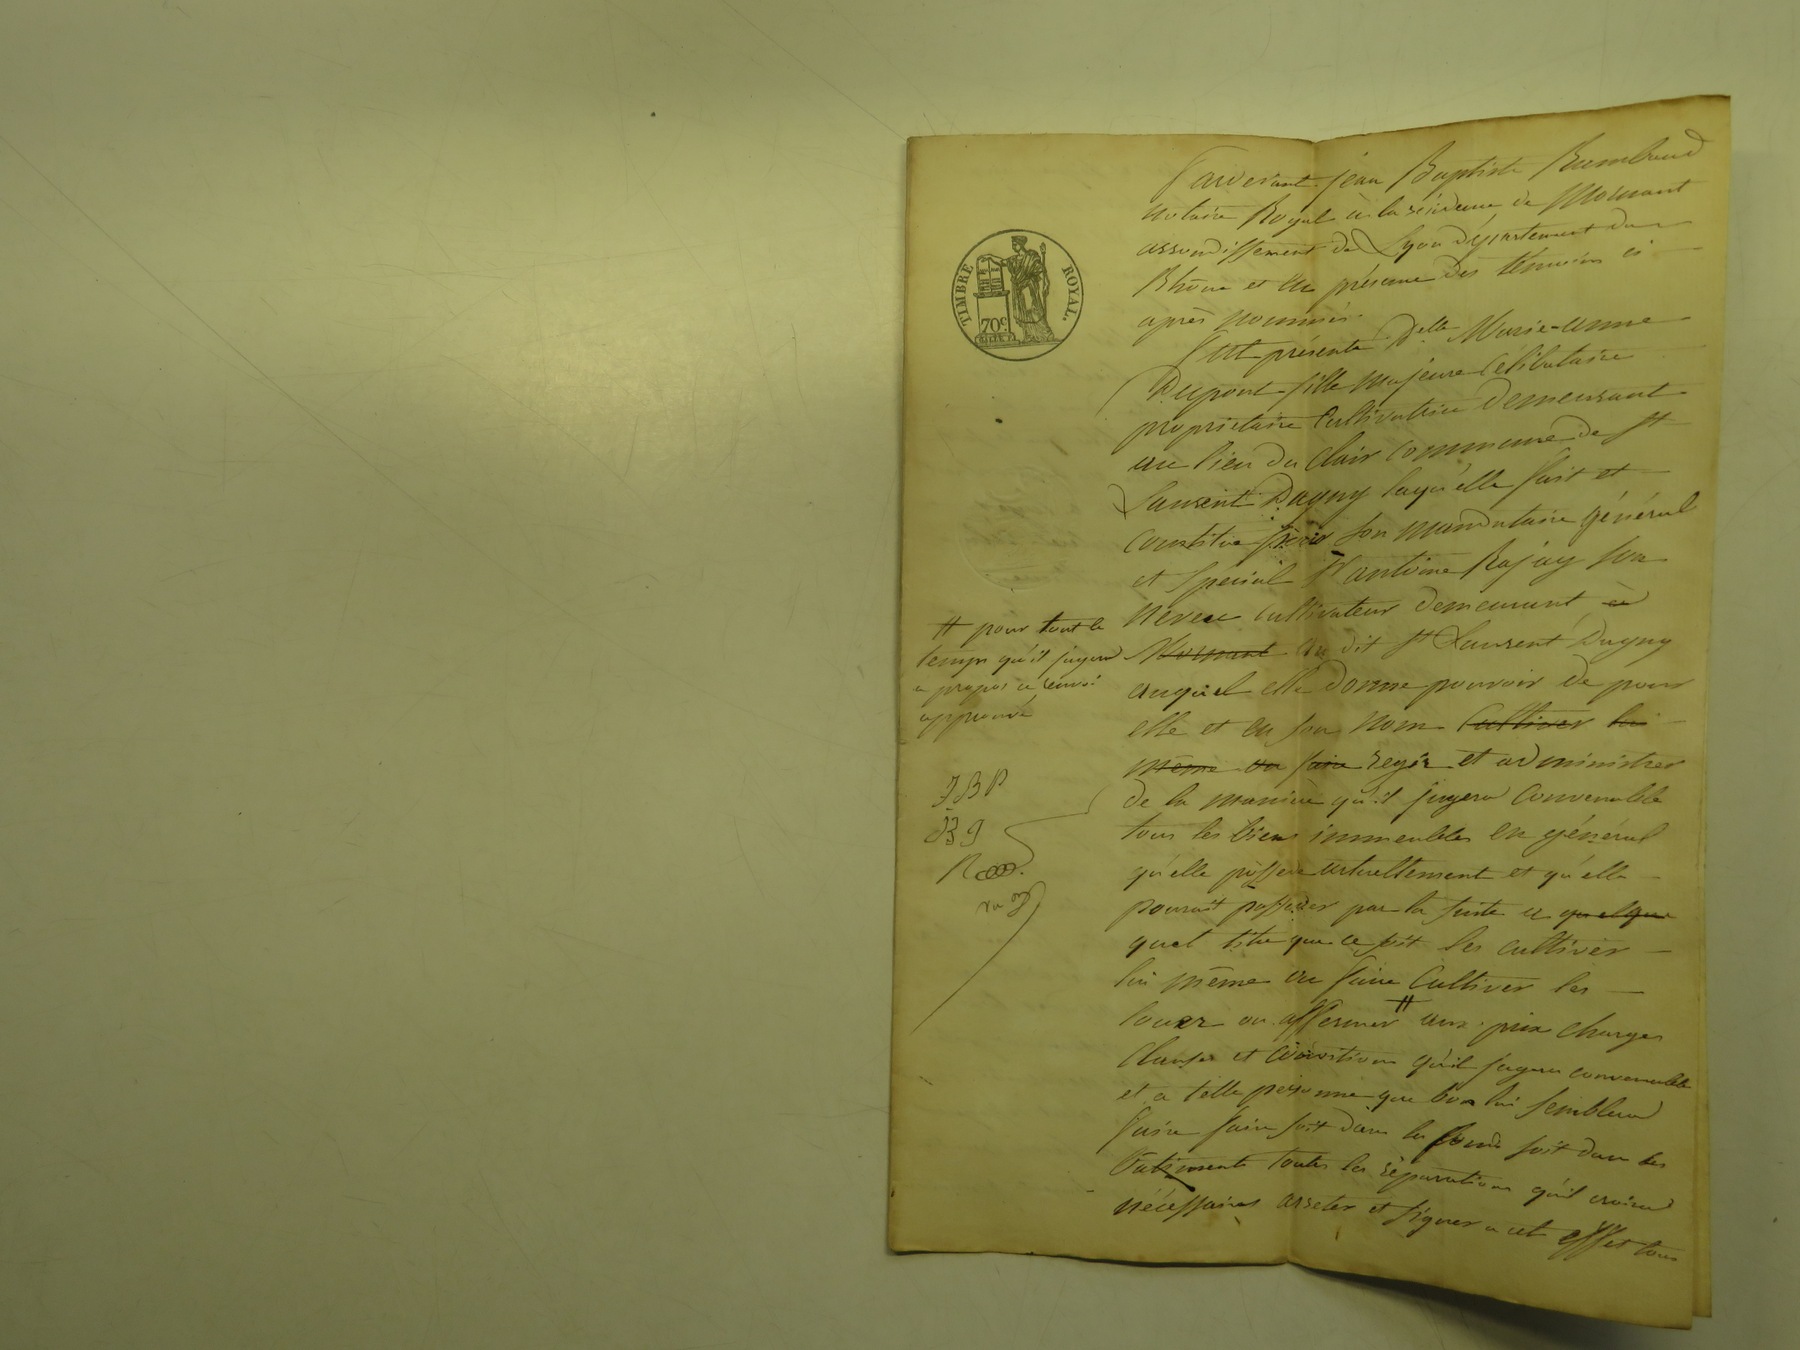 Pardevant jean Baptiste Rambaud
notaire Royal à la résidence de Mornant
arrondissement de Lyon département du
Rhône et en présence des témoins ci
après nommés
TIMBRE ROYAL.
70c
fut présente Delle Marie-anne
Dupont fille majeure Célibataire
propriétaire Cultivatrice demeurant
au lieu du Clair commune de St
Laurent Dagny laquelle fait et
constitue pour son mandataire général
et spécial Sr antoine Rajay son
neveu cultivateur demeurant à
Mornant au dit St Laurent Dagny
auquel elle donne pouvoir de pour
elle et en son nom Cultiver lui
même ou faire regir et administrer
de la manière qu'il jugera Convenable
tous les biens immeubles en général
qu'elle possede actuellement et qu'elle
pourrait posseder par la suite a quelque
quel titre que ce soit les cultiver
lui même ou faire Cultiver les
louer ou affermer # aux prix charges
Clauses et conditions qu'il jugera convenable
et a telle personne que bon lui semblera
faire faire soit dans les fonds soit dans les
Batiments toutes les réparations qu'il croira
nécessaires arreter et signer a cet effet tous
# pour tout le
temps qu'il jugera
a propos ce renvoi
approuvé
JBP
JBJ
R